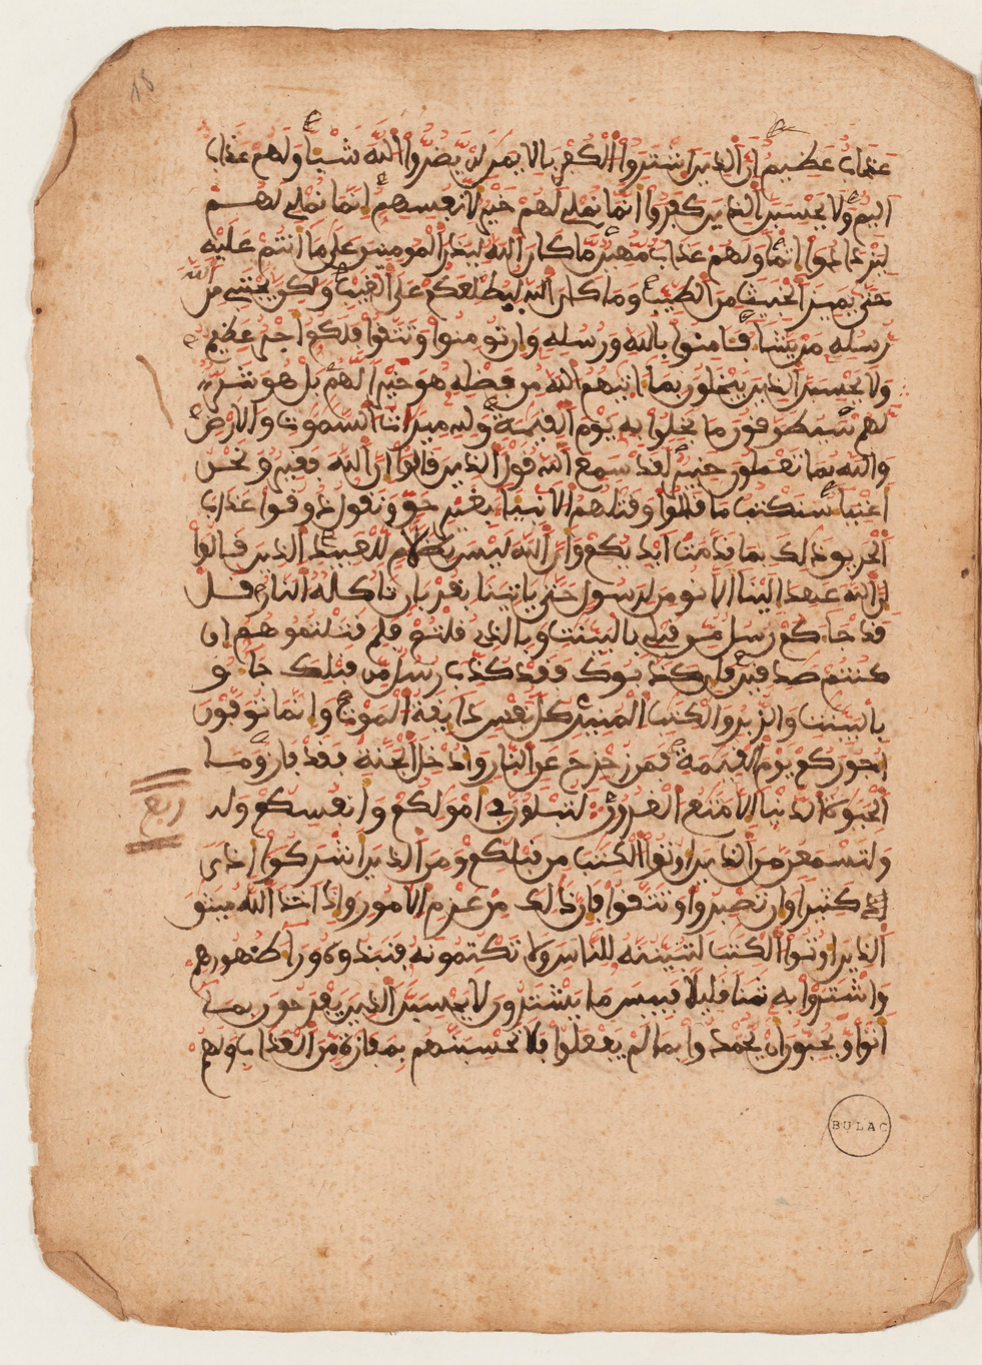 18
عذاب عظيم ان الذين اشتروا الكفر بالايمن لن يضروا الله شيا ولهم عذاب
اليم ولا يحسبن الذين كفروا انما نملي لهم خير لانفسهم انما نملي لهم
ليزدادوا اثما ولهم عذاب مهين ما كان الله ليذر المومنين على ما انتم عليه
حتى يميز الخبيث من الطيب وما كان الله ليطلعكم على الغيب ولكن يجتبي من
رسله من يشا فامنوا بالله ورسله وان تومنوا وتتقوا فلكم اجر عظيم
ولا يحسبن الذين يبخلون بما اتيهم الله من فضله هو خيرا لهم بل هو شر
لهم سيطوقون ما بخلوا به يوم القيمة ولله ميرات السموت والارض
والله بما تعملون خبير لقد سمع الله قول الذين قالوا ان الله فقير ونحن
اغنيا سنكتب ما قالوا وقتلهم الانبيا بغير حق ونقول ذوقوا عذاب
الحريق ذلك بما قدمت ايديكم وان الله ليس بظلام للعبيد الذين قالوا
ان الله عهد الينا الا نومن لرسول حتى ياتينا بقربان تاكله النار قل
قد جاكم رسل من قبلي بالبينت وبالذي قلتم فلم قتلتموهم ان
كنتم صدقين فان كذبوك فقد كذب رسل من قبلك جاو
بالبينت والزبر والكتب المنير كل نفس ذايقة الموت وانما توفون
اجوركم يوم القيمة فمن زحزح عن النار وادخل الجنة فقد فاز وما
الحيوة الدنيا الا متع الغرور لتبلون في امولكم وانفسكم ولت
ربع
ولتسمعن من الذين اوتوا الكتب من قبلكم ومن الذين اشركوا اذى
كثيرا وان تصبروا وتتقوا فان ذلك من عزم الامور واذ اخذ الله ميثق
الذين اوتوا الكتب لتبيننه للناس ولا تكتمونه فنبذوه ورا ظهورهم
واشتروا به ثمنا قليلا فبيس ما يشترون لا يحسبن الذين يفرحون بما
اتوا ويحبون ان يحمدوا بما لم يفعلوا فلا تحسبنهم بمفازة من العذاب ولهم
BULAC